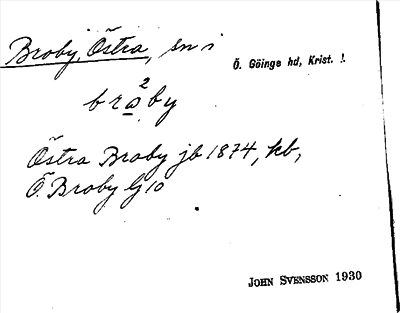 Broby, Östra, sn i
Ö. Göinge hd, Krist. l.
bra²by
Östra Broby jb 1874, kb,
Ö. Broby G 10
JOHN SVENSSON 1930